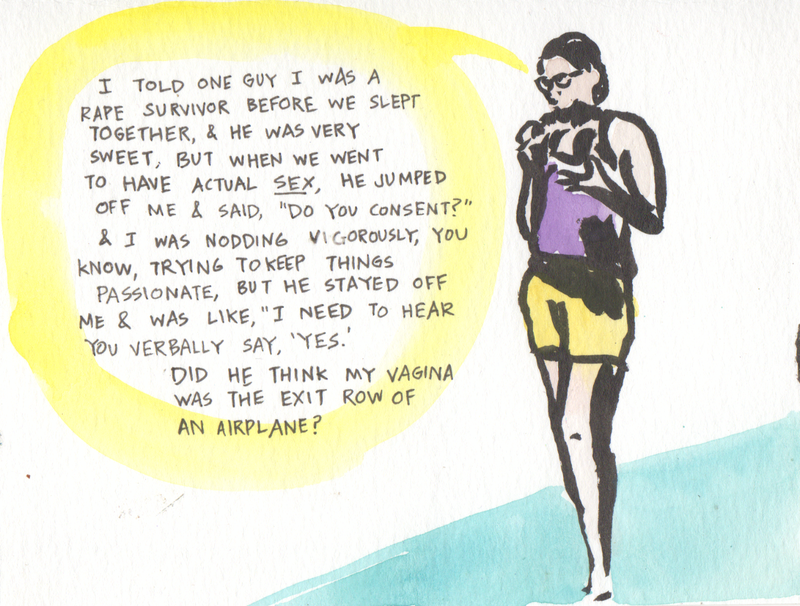 I TOLD ONE GUY I WAS A
RAPE SURVIVOR BEFORE WE SLEPT
TOGETHER, & HE WAS VERY
SWEET, BUT WHEN WE WENT
TO HAVE ACTUAL SEX, HE JUMPED
OFF ME & SAID, "DO YOU CONSENT?"
& I WAS NODDING VIGOROUSLY, YOU
KNOW, TRYING TO KEEP THINGS
PASSIONATE, BUT HE STAYED OFF
ME & WAS LIKE, "I NEED TO HEAR
YOU VERBALLY SAY, 'YES.'
DID HE THINK MY VAGINA
WAS THE EXIT ROW OF
AN AIRPLANE?